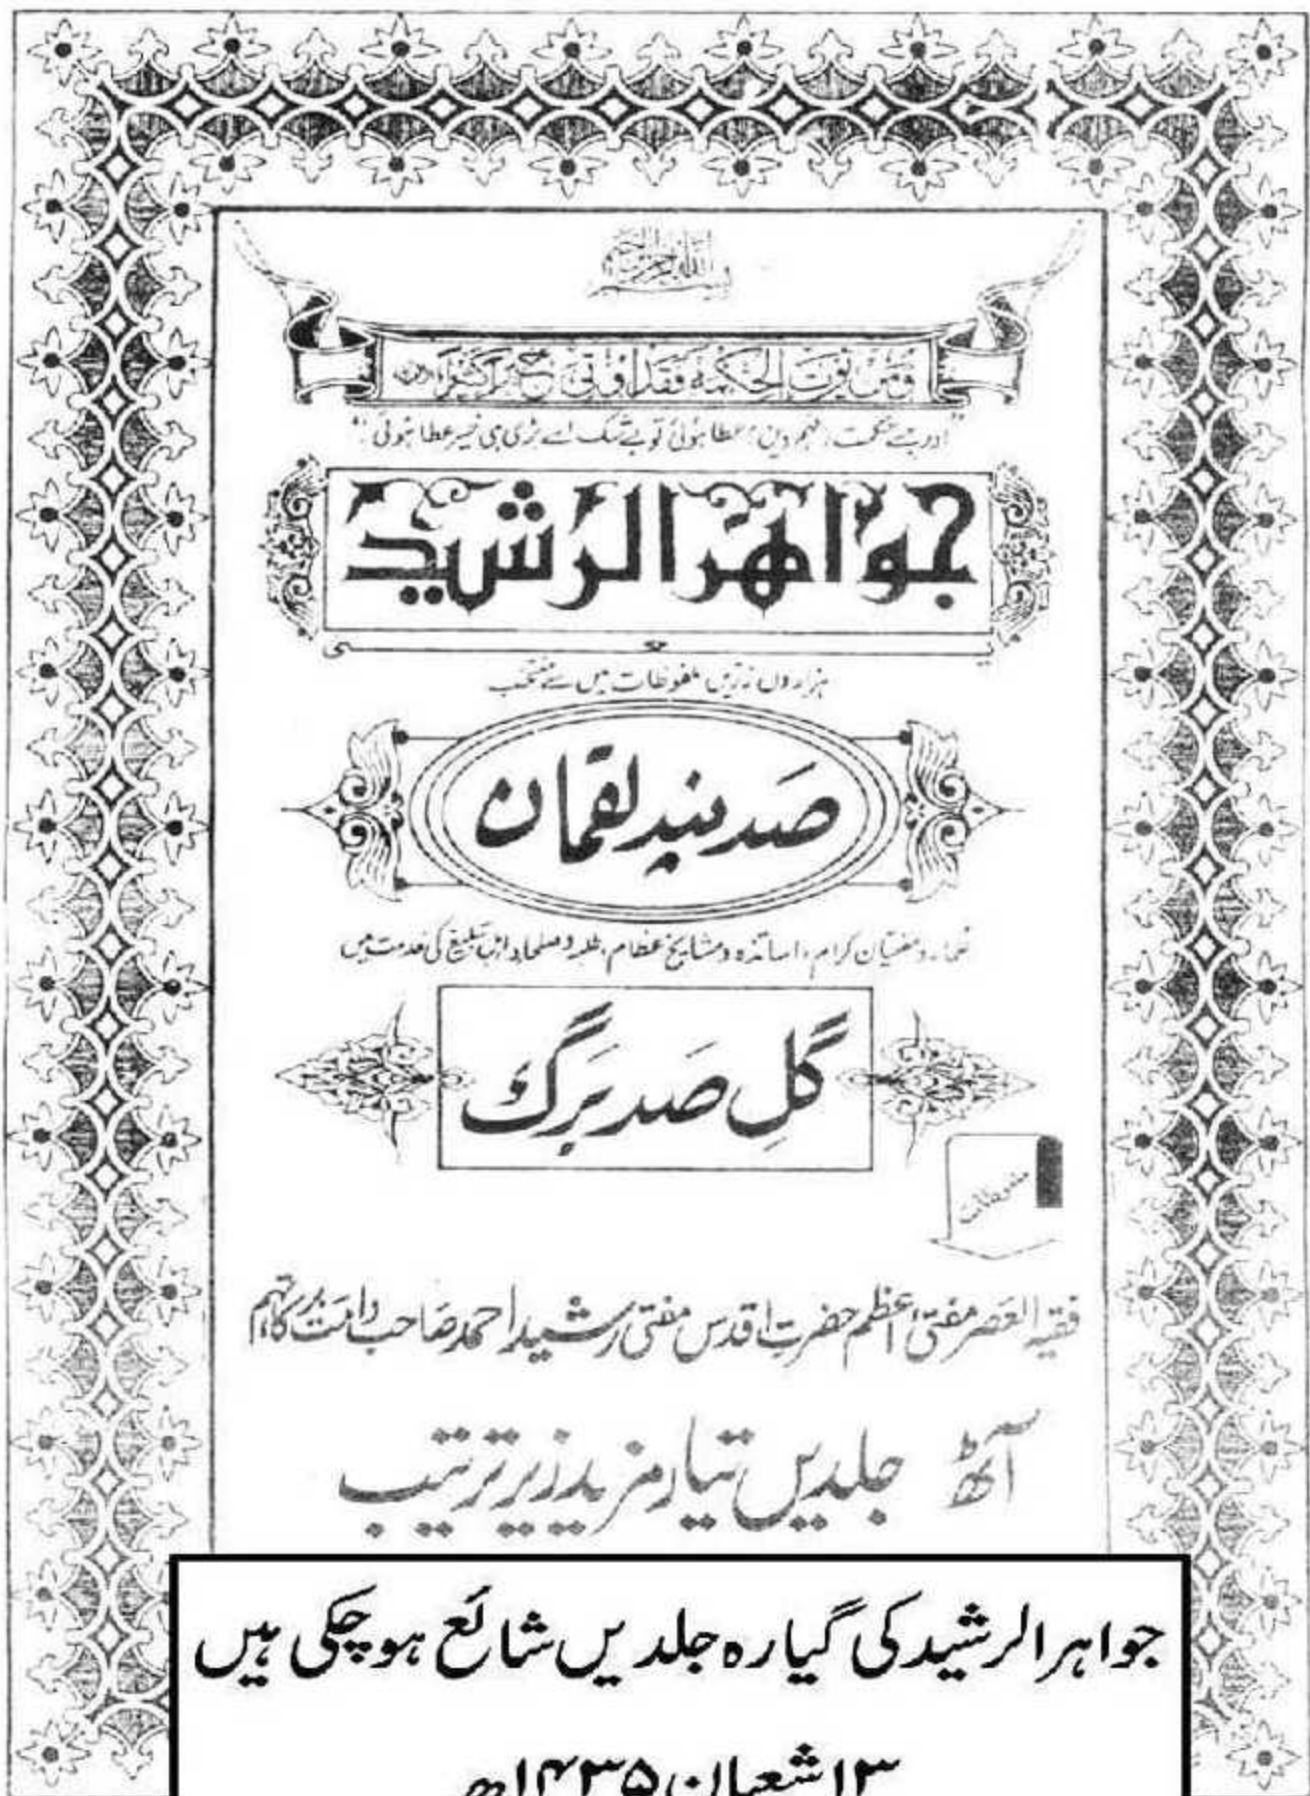 بسم اللہ الرحمن الرحیم
وَمَن يُؤْتَ الْحِكْمَةَ فَقَدْ أُوتِيَ خَيْرًا كَثِيرًا
"اور جسے حکمت (فہم دین) عطا ہوئی تو بے شک اسے بڑی ہی خیر عطا ہوئی"
جواہر الرشید
یعنی
ہزاروں زریں ملفوظات میں سے منتخب
صَد پندِ لقمان
علماء و مفتیان کرام، اساتذہ و مشایخ عظام، طلبہ و صلحاء و اہل تبلیغ کی خدمت میں
گلِ صَد بَرگ
ملفوظات
فقیہ العصر مفتی اعظم حضرت اقدس مفتی رشید احمد صاحب دامت برکاتہم
آٹھ جلدیں تیار مزید زیر ترتیب
جواہر الرشید کی گیارہ جلدیں شائع ہو چکی ہیں
۱۳ شعبان ۱۴۳۵ھ